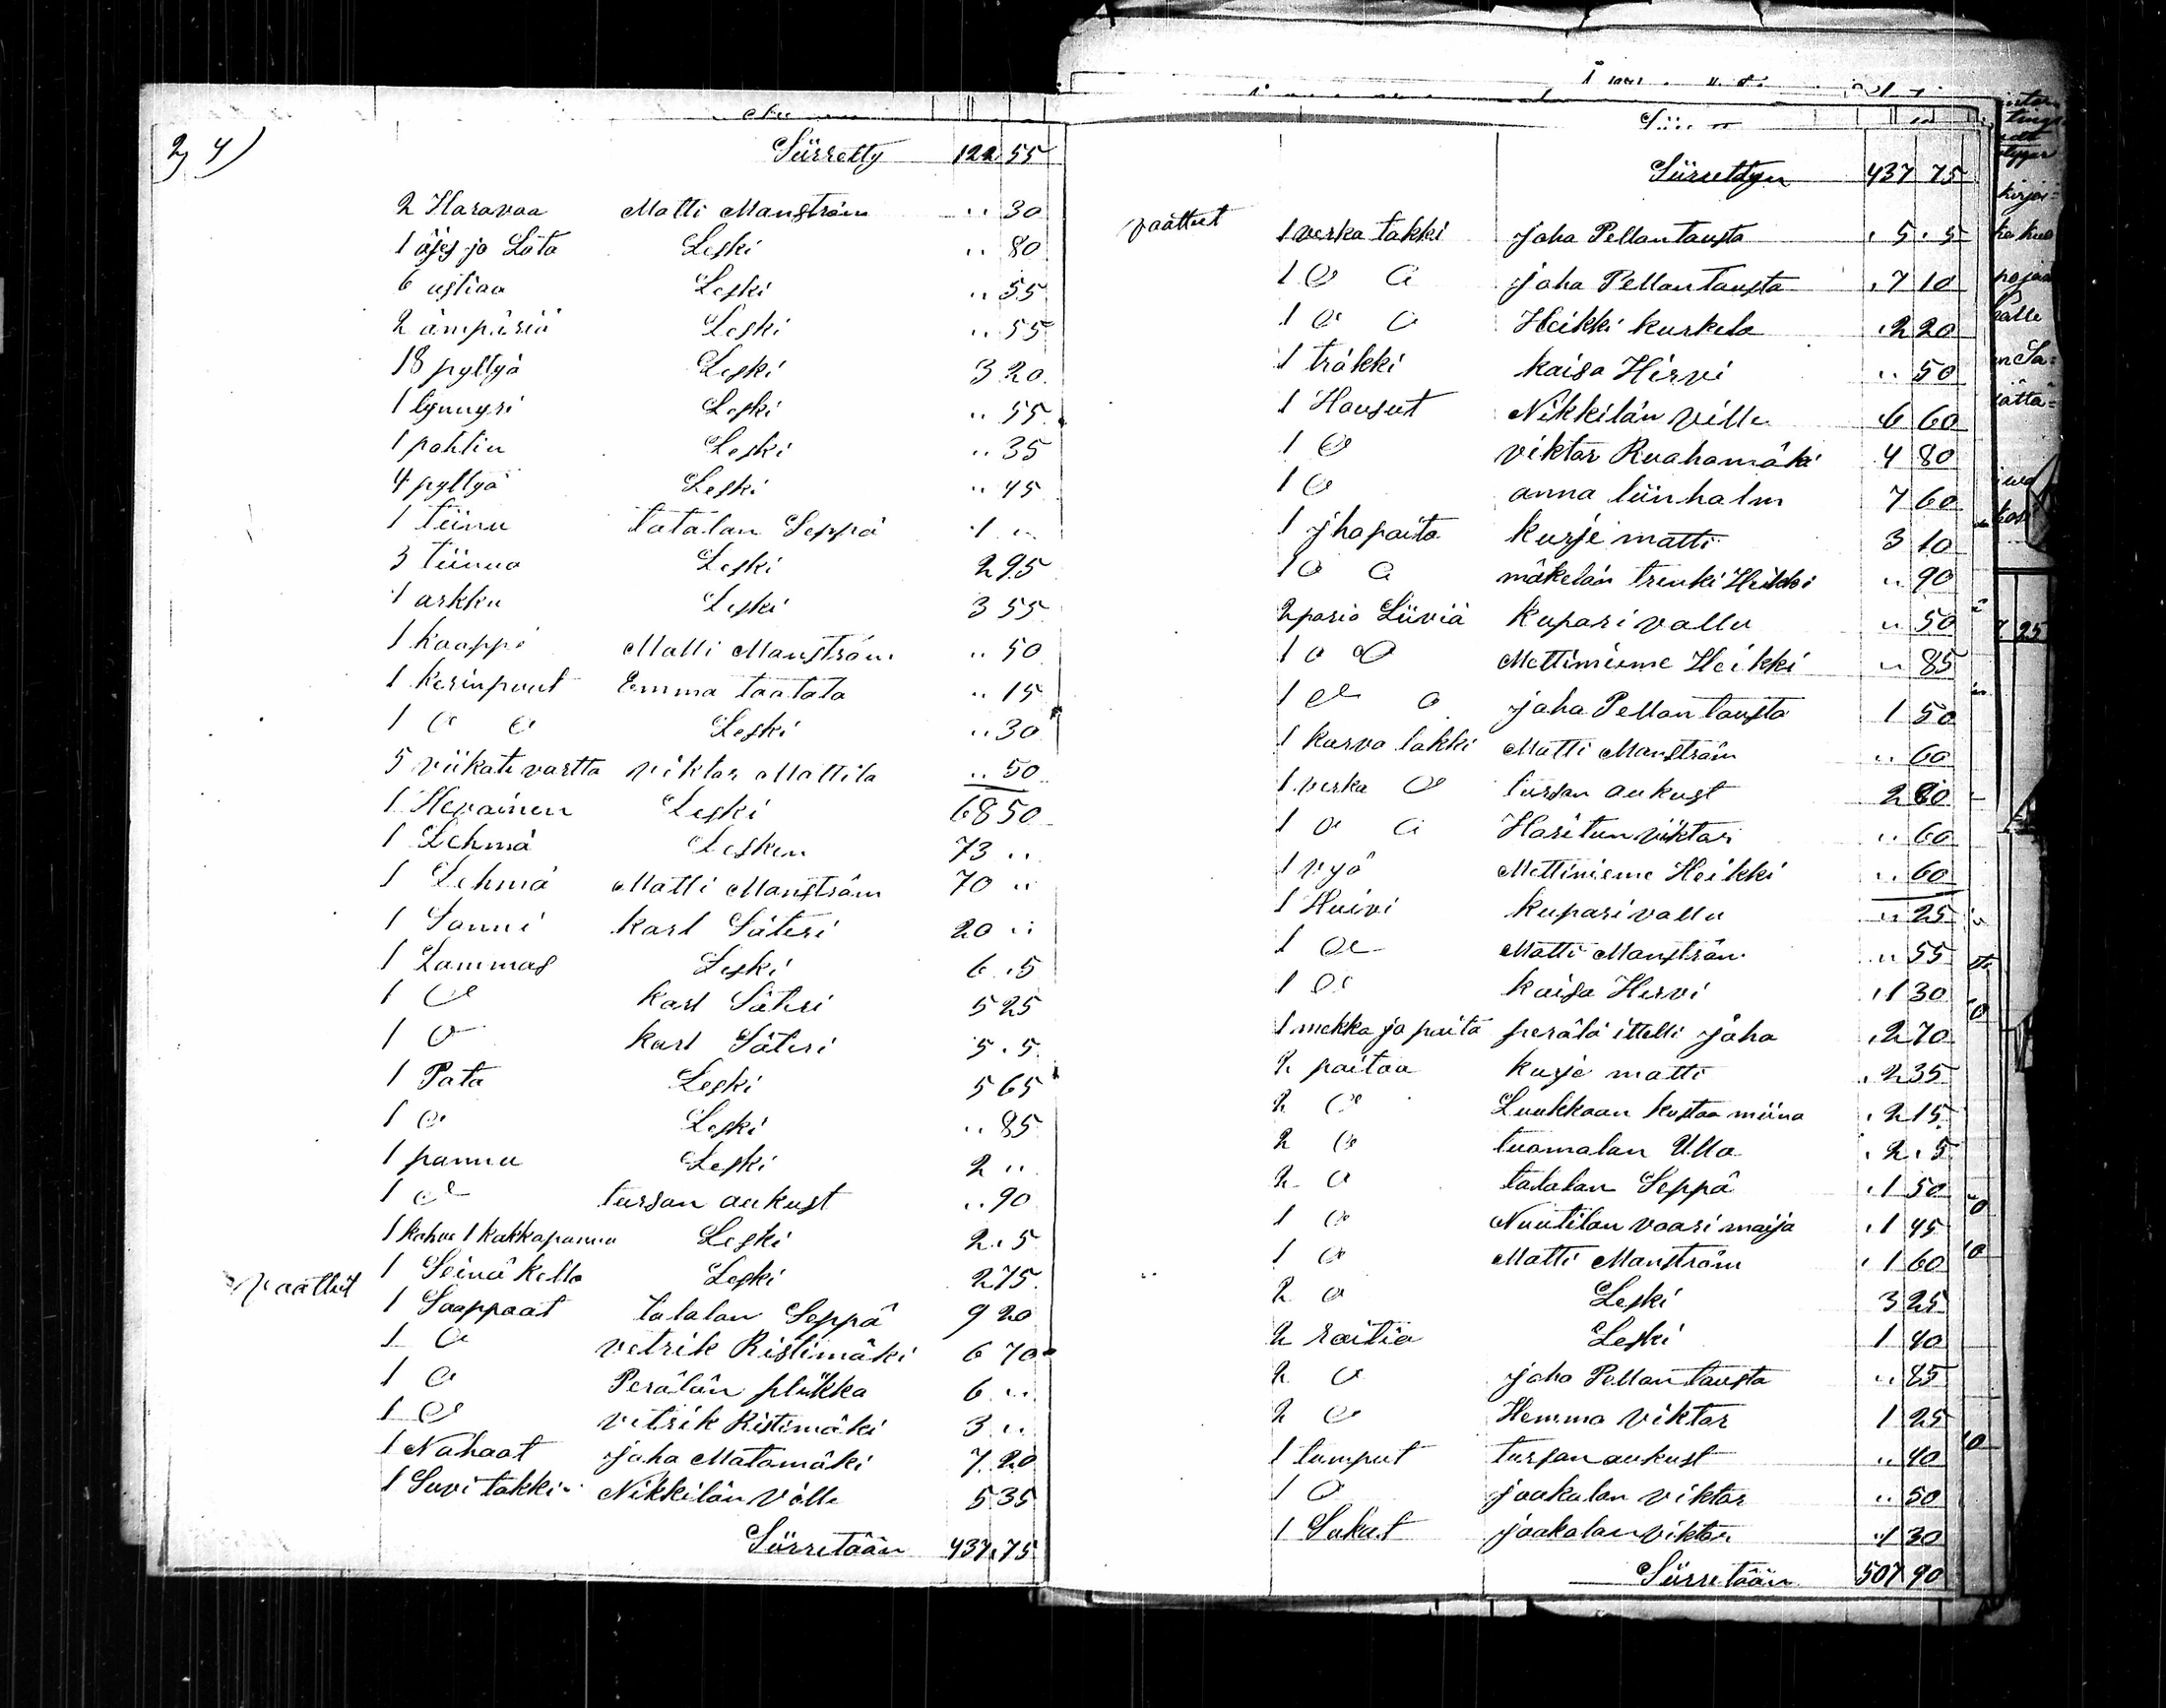 2, 4)
Siirretty 122 55
2 Haravaa Matti Manström .. 30
1 äjes ja Lota Leski .. 80
6 astiaa Leski .. 55
2 ämpäriä Leski .. 55
18 pyttyä Leski 3 20
1 lynnyri Leski .. 55
1 pohtin Leski .. 35
4 pyttyä Leski .. 45
1 tiinu tatalan Seppä 1 ..
3 tiinua Leski 2 95
1 arkku Leski 3 55
1 kaappi Matti Manström .. 50
1 kerinpuut Emma taatala .. 15
1 O O Leski .. 30
5 viikate vartta viktor Mattila .. 50
1 Hevoinen Leski 68 50
1 Lehmä Lesken 73 ..
1 Lehmä Matti Manström 70 ..
1 Sonni karl Säteri 20 ..
1 Lammas Leski 6 . 5
1 O karl Säteri 5 25
1 O karl Säteri 5 . 5
1 Pata Leski 5 65
1 O Leski .. 85
1 pannu Leski 2 ..
1 O tursan aukust .. 90
1 kahve 1 kakkapannu Leski 2 . 5
1 Seinä kello Leski 2 75
vaatteet 1 Saappaat tatalan Seppä 9 20
1 O vetrik Ristimäki 6 70
1 O Perälän plikka 6 ..
1 O vetrik Ristimäki 3 ..
1 Nahaat joha Matomäki 7 20
1 Suvi takki Nikkilän Ville 5 35
Siirretään 437 75
Siirrettyn 437 75
vaatteet 1 verka takki joha Pellontausta . 5 . 5
1 O O joha Pellontausta . 7 10
1 O O Heikki kurkela . 2 20
1 träkki kaisa Hirvi .. 50
1 Housut Nikkilän Ville 6 60
1 O viktor Ruohomäki 4 80
1 O anna liinholm 7 60
1 jhopaita kurje matti 3 10
1 O O mäkelän trenki Heikki .. 90
2 paria Liiviä kupari vallu .. 50
1 O O Mettinieme Heikki .. 85
1 O O joha Pellontausta 1 50
1 karva lakki Matti Manström .. 60
1 verka O tursan aukust 2 80
1 O O Haritun viktori .. 60
1 vyö Mettinieme Heikki .. 60
1 Huivi kupari vallu .. 25
1 O Matti Manström .. 55
1 O kaisa Hirvi . 1 30
1 mekko ja paita perälä ittelli joha . 2 70
2 paitaa kurje matti . 2 35
2 O Luukkaan kustaa miina . 2 15
2 O tuomalan Ulla . 2 . 5
2 O tatalan Seppä . 1 50
1 O Nuutilan vaari maija . 1 45
1 O Matti Manström . 1 60
2 O Leski 3 25
2 raitia Leski 1 40
2 O joha Pellontausta .. 85
2 O Hemma viktor 1 25
1 tumput tursan aukust .. 40
1 O jaakalan viktor .. 50
1 Sukat jaakalan viktor 1 30
Siirretään 507 90